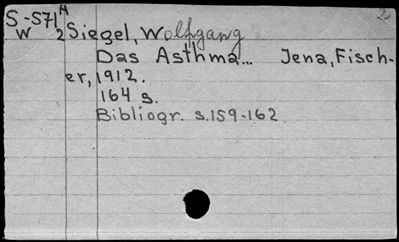 S-S71 A 2
W 2 Siegel, Wolfgang
Das Asthma... Jena, Fisch-
er, 1912.
164 s.
Bibliogr. s.159-162